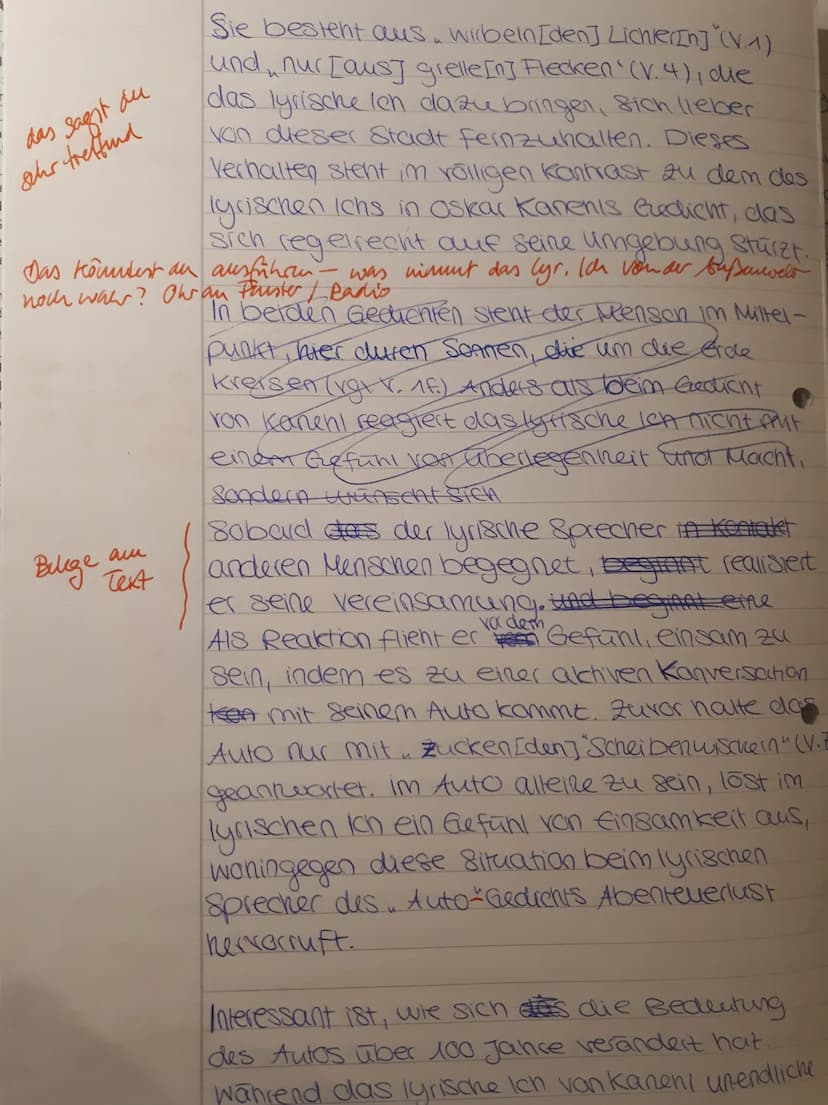 Sie besteht aus „wirbeln[den] Lichter[n]" (V.1)
und „nur [aus] grelle[n] Flecken" (V.4), die
das lyrische Ich dazu bringen, sich lieber
von dieser Stadt fernzuhalten. Dieses
das sagst du
sehr treffend
Verhalten steht im völligen Kontrast zu dem des
lyrischen Ichs in Oskar Kanehls Gedicht, das
sich regelrecht auf seine Umgebung stürzt.
Das könntest du ausführen – was nimmt das lyr. Ich von der Außenwelt
noch wahr? Ohr am Fenster / Radio
In beiden Gedichten steht der Mensch im Mittel-
punkt, hier durch Sonnen, die um die Erde
kreisen (vgl. V. 1f.) Anders als beim Gedicht
von Kanehl reagiert das lyrische Ich nicht mit
einem Gefühl von Überlegenheit und Macht,
sondern wünscht sich
Sobald das der lyrische Sprecher in Kontakt
anderen Menschen begegnet, beginnt realisiert
er seine Vereinsamung. und beginnt eine
Belege am
Text
Als Reaktion flieht er vor dem Gefühl, einsam zu
sein, indem es zu einer aktiven Konversation
kon mit seinem Auto kommt. Zuvor hatte das
Auto nur mit „zucken[den] Scheibenwischern" (V.7
geantwortet. Im Auto alleine zu sein, löst im
lyrischen Ich ein Gefühl von Einsamkeit aus,
woningegen diese Situation beim lyrischen
Sprecher des „Auto"-Gedichts Abenteuerlust
hervorruft.
Interessant ist, wie sich das die Bedeutung
des Autos über 100 Jahre verändert hat.
Während das lyrische Ich von Kanehl unendliche